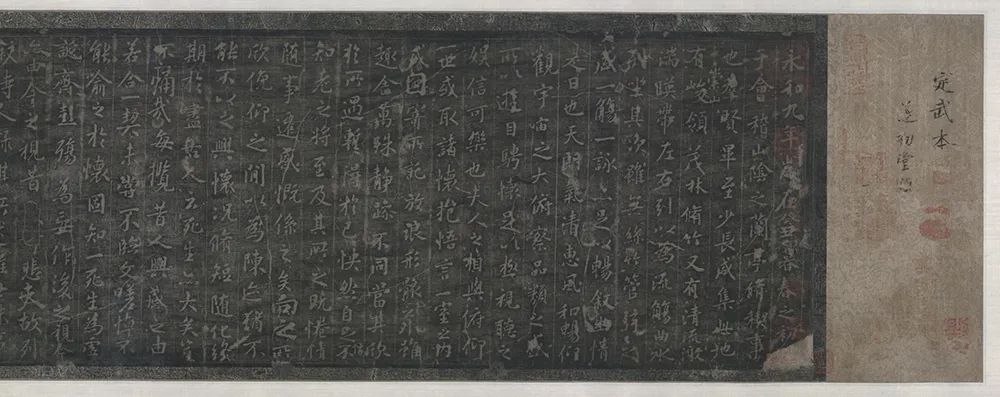 定武本
遂初堂
永和九年歲在癸丑暮春之初
于會稽山陰之蘭亭脩禊事
也羣賢畢至少長咸集此地
有崇山峻領茂林脩竹又有清流激
湍暎帶左右引以為流觴曲水
列坐其次雖無絲竹管弦之
盛一觴一詠亦足以暢敘幽情
是日也天朗氣清惠風和暢仰
觀宇宙之大俯察品類之盛
所以遊目騁懷足以極視聽之
娛信可樂也夫人之相與俯仰
一世或取諸懷抱悟言一室之內
或因寄所託放浪形骸之外雖
趣舍萬殊靜躁不同當其欣
於所遇蹔得於己快然自足不
知老之將至及其所之既惓情
隨事遷感慨係之矣向之所
欣俛仰之閒以為陳迹猶不
能不以之興懷況脩短隨化終
期於盡古人云死生亦大矣豈
不痛哉每攬昔人興感之由
若合一契未嘗不臨文嗟悼不
能喻之於懷固知一死生為虛
誕齊彭殤為妄作後之視今
亦由今之視昔悲夫故列
敘時人錄其所述雖世殊